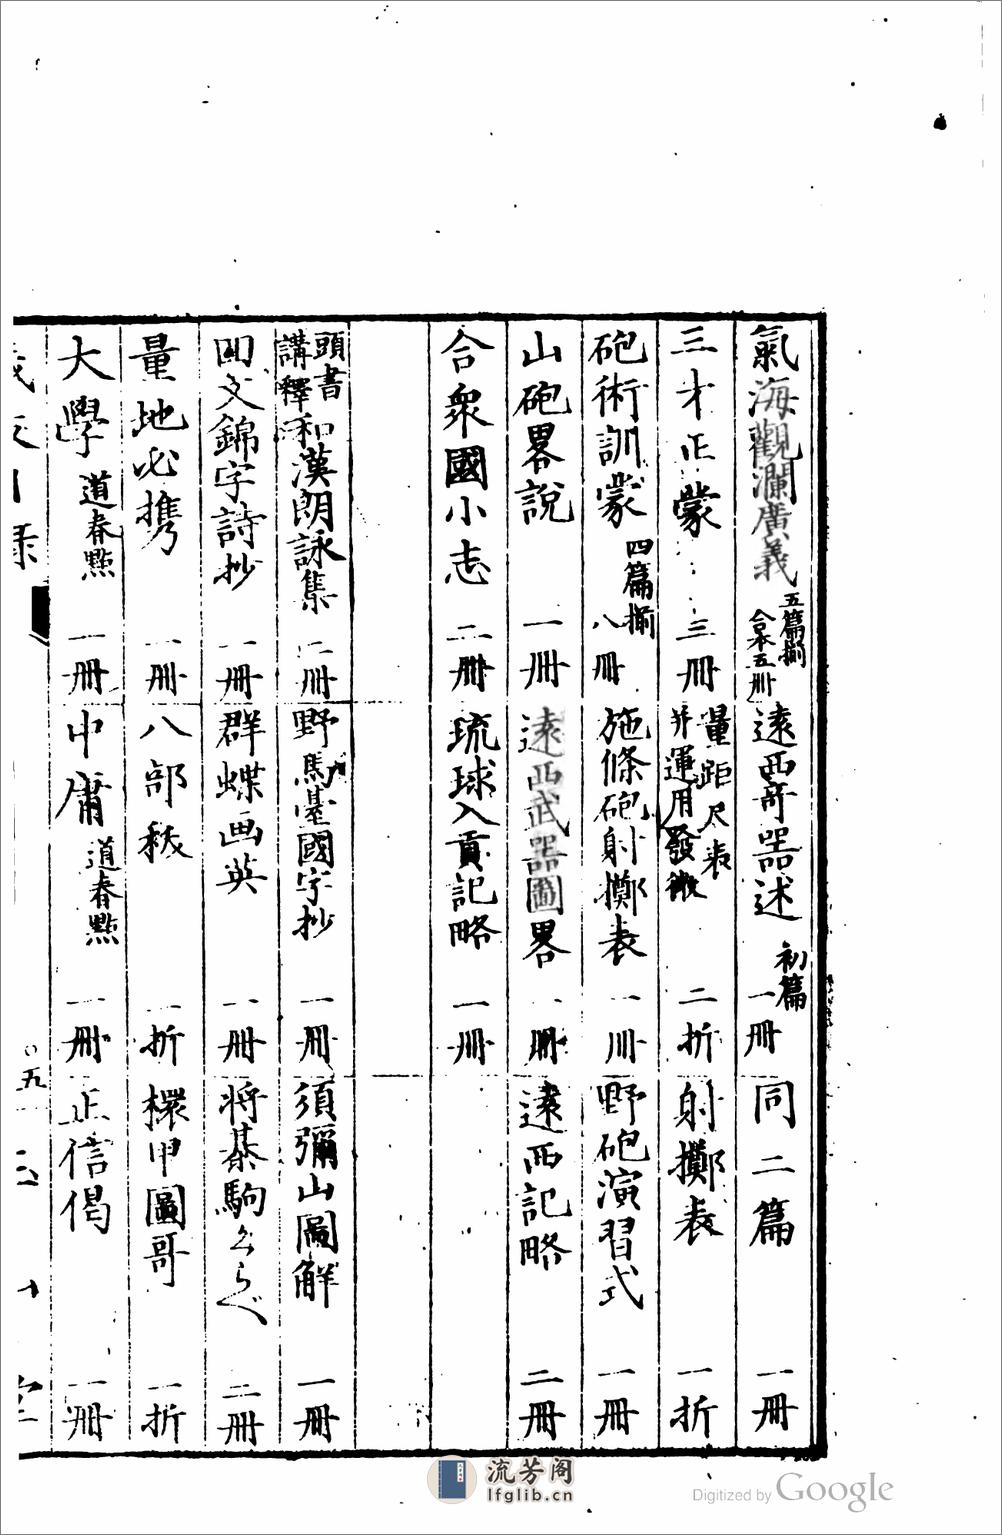 氣海觀瀾廣義 五篇揃 合本五冊 遠西奇器述 初篇 一冊 同二篇 一冊
三才正蒙 三冊 量距尺表 并運用發微 二折 射擲表 一折
砲術訓蒙 四篇揃 八冊 施條砲射擲表 一冊 野砲演習式 一冊
山砲畧說 一冊 遠西武器圖畧 一冊 遠西記略 二冊
合衆國小志 二冊 琉球入貢記略 一冊
頭書講釋 和漢朗詠集 二冊 野馬臺國字抄 一冊 須彌山圖解 一冊
回文錦字詩抄 一冊 群蝶画英 一冊 将棊駒くらべ 二冊
量地必携 一冊 八部秡 一折 擐甲圖哥 一折
大學 道春點 一冊 中庸 道春點 一冊 正信偈 一冊
流芳阁
lfglib.cn
Digitized by Google